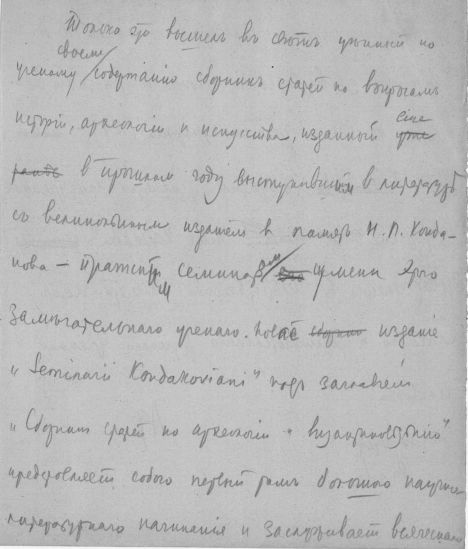 Только что вышелъ въ светъ ценный по
своему
ученому содержанию сборникъ статей по вопросамъ
исторіи, археологіи и искусства, изданный еще
въ прошломъ году выступившимъ в литературѣ
съ великолѣпнымъ изданіемъ в память Н. П. Конда-
кова – Пражскимъ семинаріемъ имени этого
замѣчательнаго ученаго. Новое изданіе
„Seminarii Kondakoviani" подъ заглавіемъ
„Сборникъ статей по археологіи и византиновѣдѣнію"
представляетъ собою первый томъ большого научно
литературнаго начинанія и заслуживаетъ всяческаго